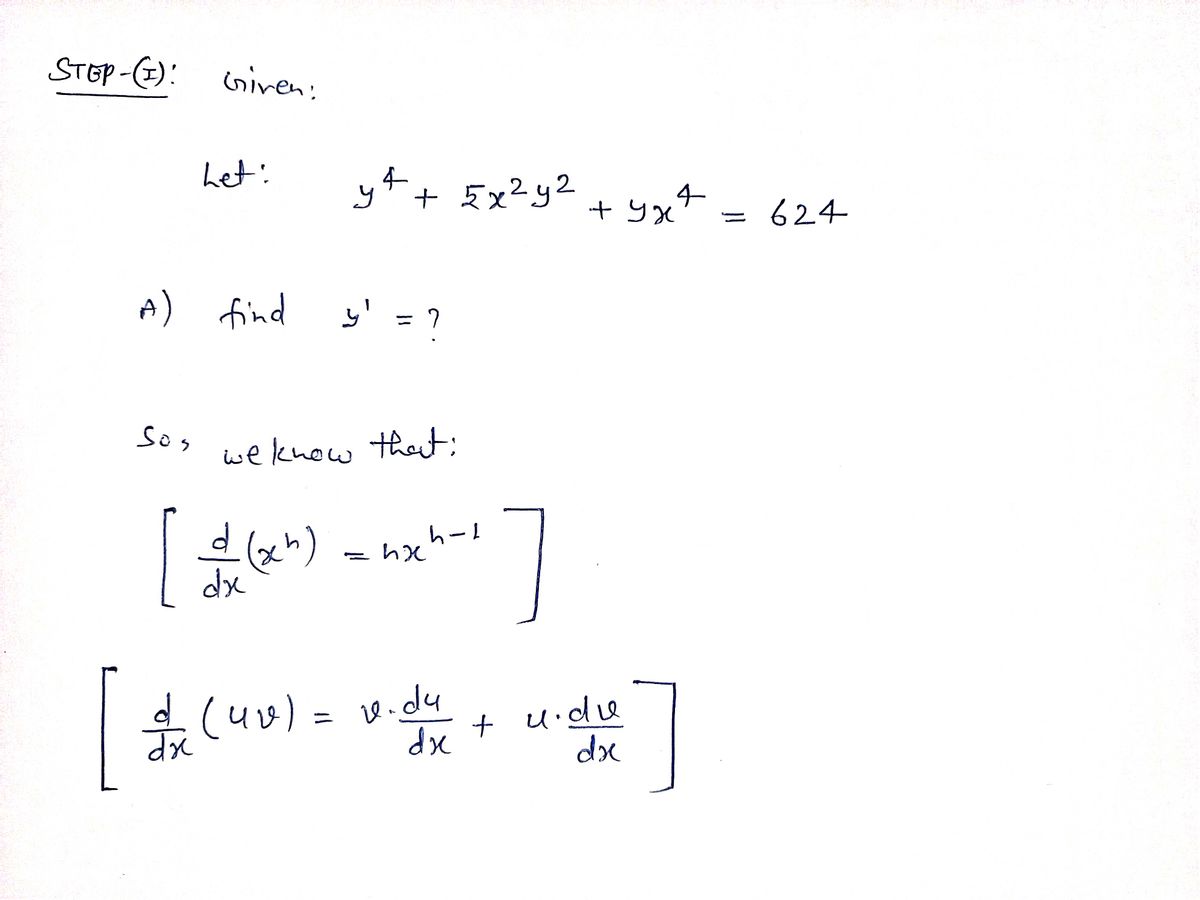 STEP-(I): Given:
Let: y⁴ + 5x²y² + yx⁴ = 624
A) find y' = ?
So, we know that:
[ d/dx (xⁿ) = nxⁿ⁻¹ ]
[ d/dx (uv) = v·du/dx + u·dv/dx ]